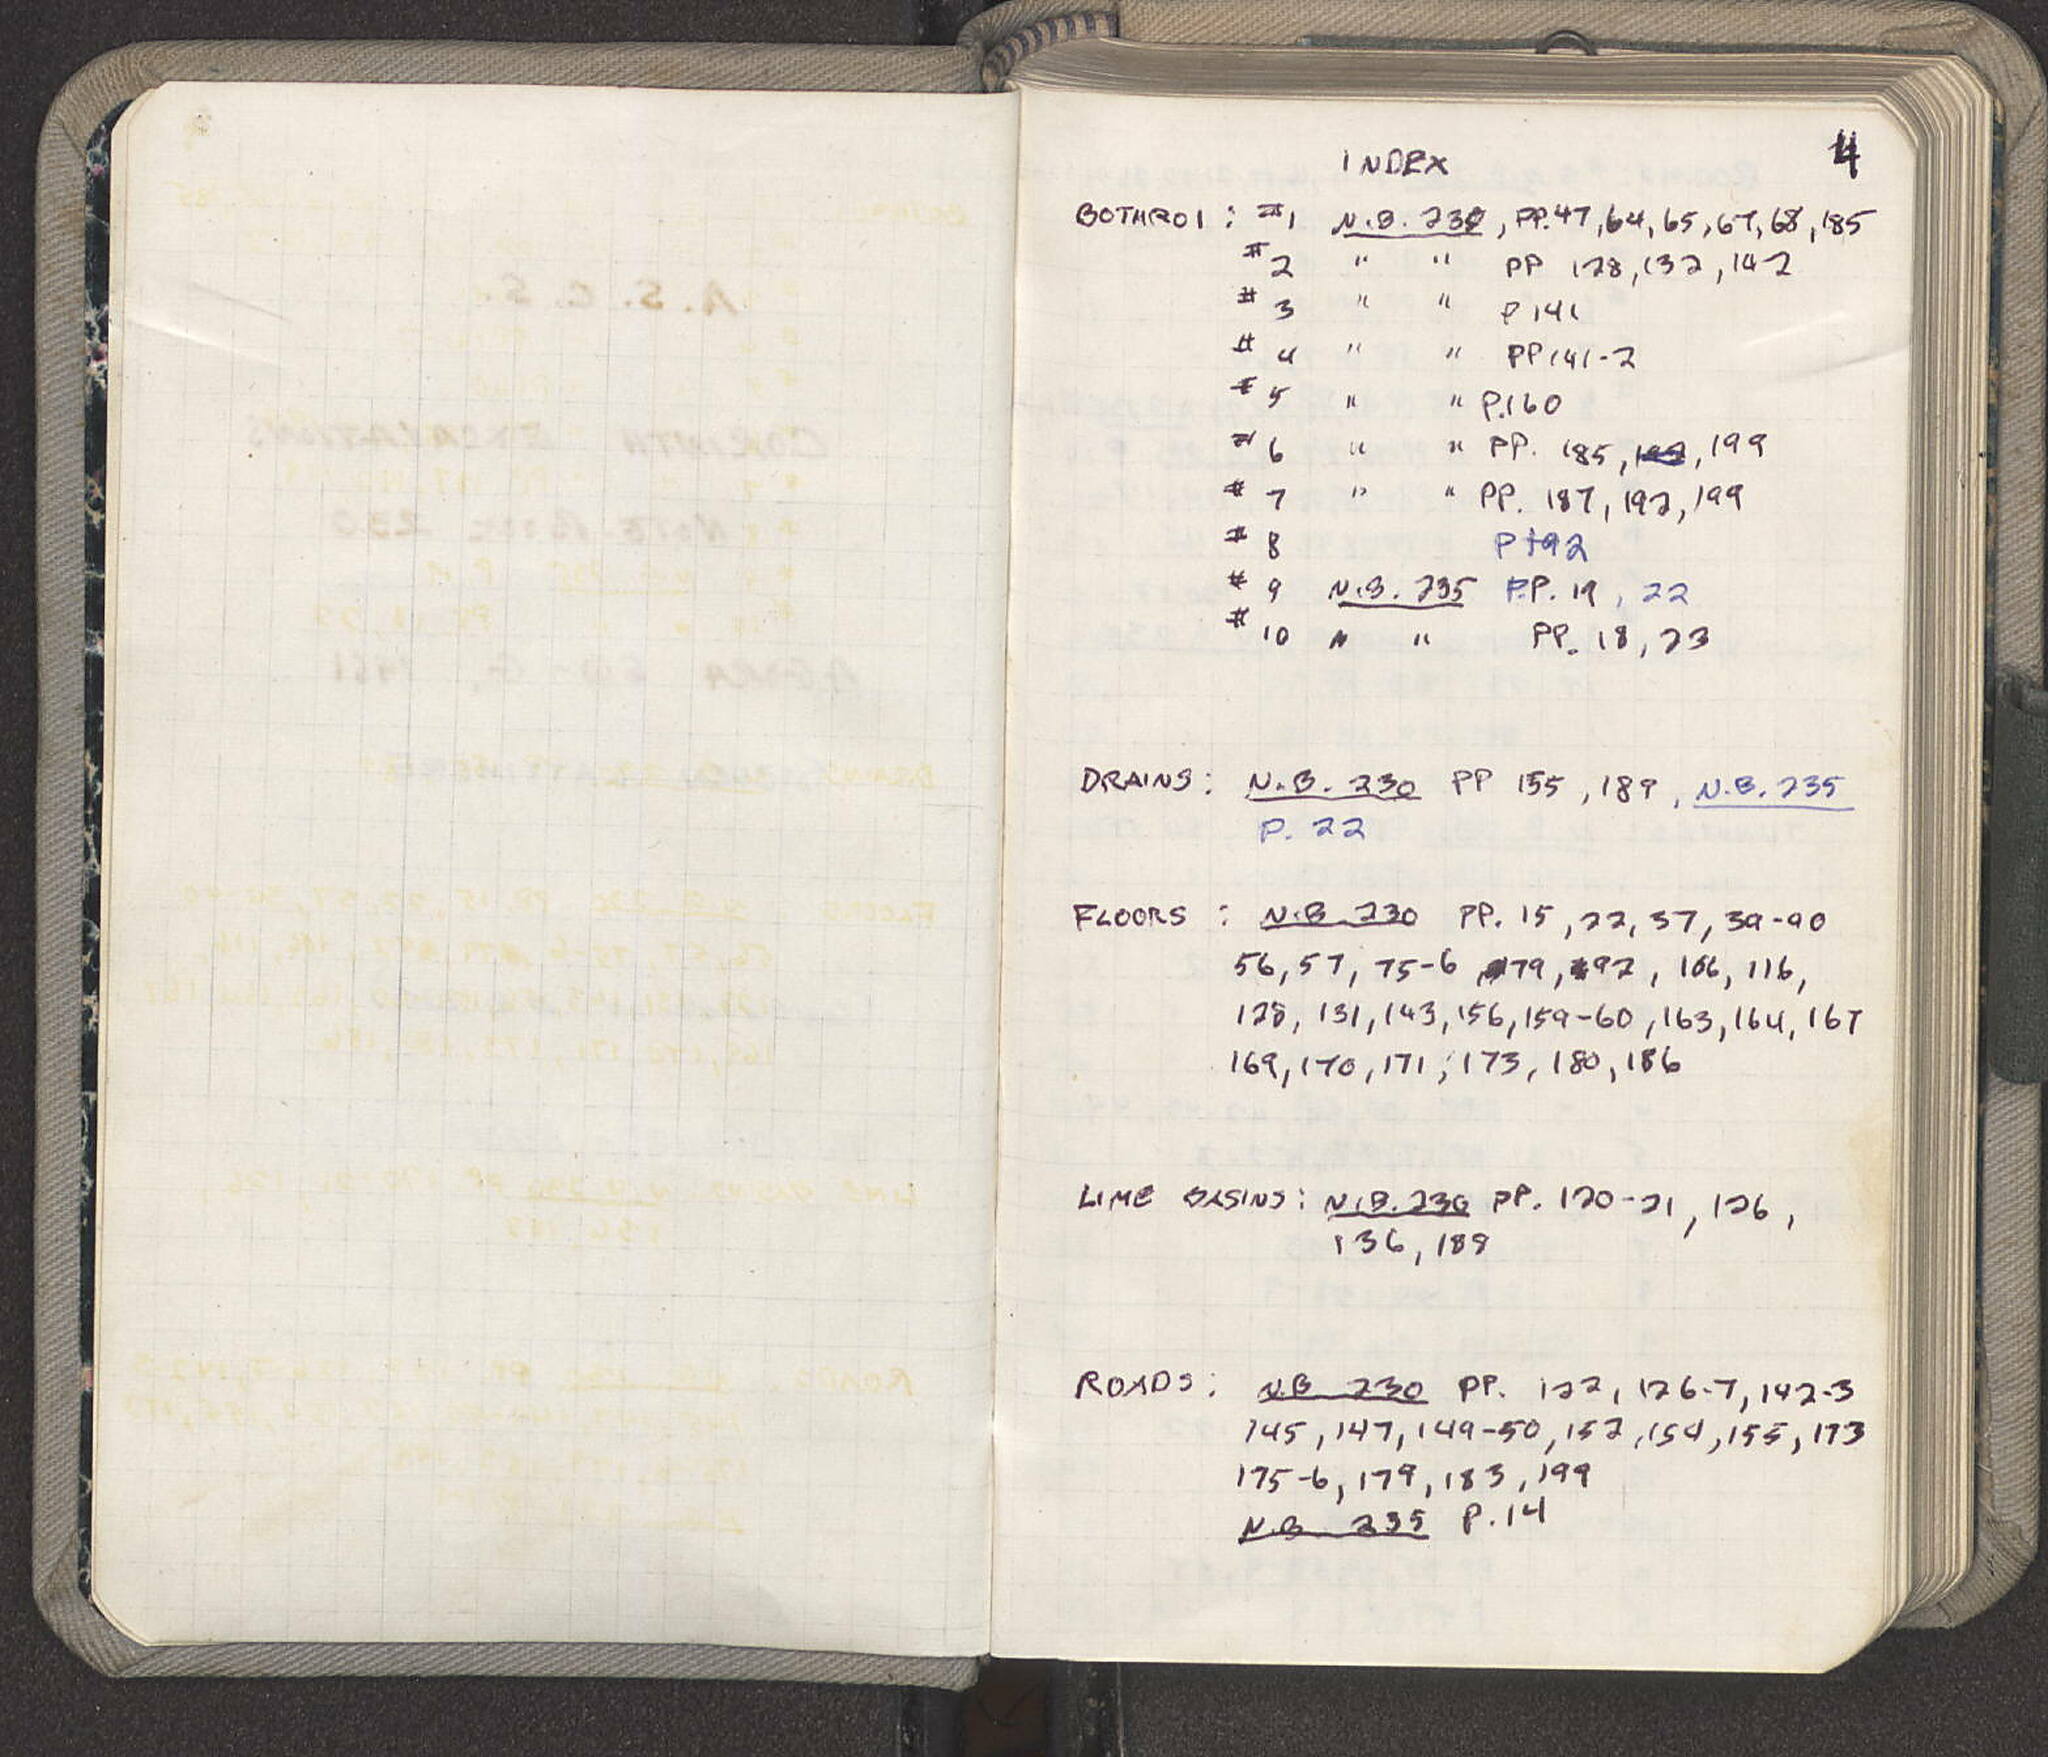 4
INDEX
BOTHROI : #1 N.B. 230, PP. 47, 64, 65, 67, 68, 185
#2 " " PP 128, 132, 142
#3 " " P 141
#4 " " PP 141-2
#5 " " P. 160
#6 " " PP. 185, 192, 199
#7 " " PP. 187, 192, 199
#8 P 192
#9 N.B. 235 PP. 19, 22
#10 " " PP. 18, 23
DRAINS: N.B. 230 PP 155, 189, N.B. 235
P. 22
FLOORS : N.B. 230 PP. 15, 22, 37, 39-90
56, 57, 75-6, 79, 92, 106, 116,
128, 131, 143, 156, 159-60, 163, 164, 167
169, 170, 171, 173, 180, 186
LIME BASINS: N.B. 230 PP. 120-21, 126,
136, 189
ROADS: N.B. 230 PP. 122, 126-7, 142-3
145, 147, 149-50, 152, 154, 155, 173
175-6, 179, 183, 199
N.B. 235 P. 14